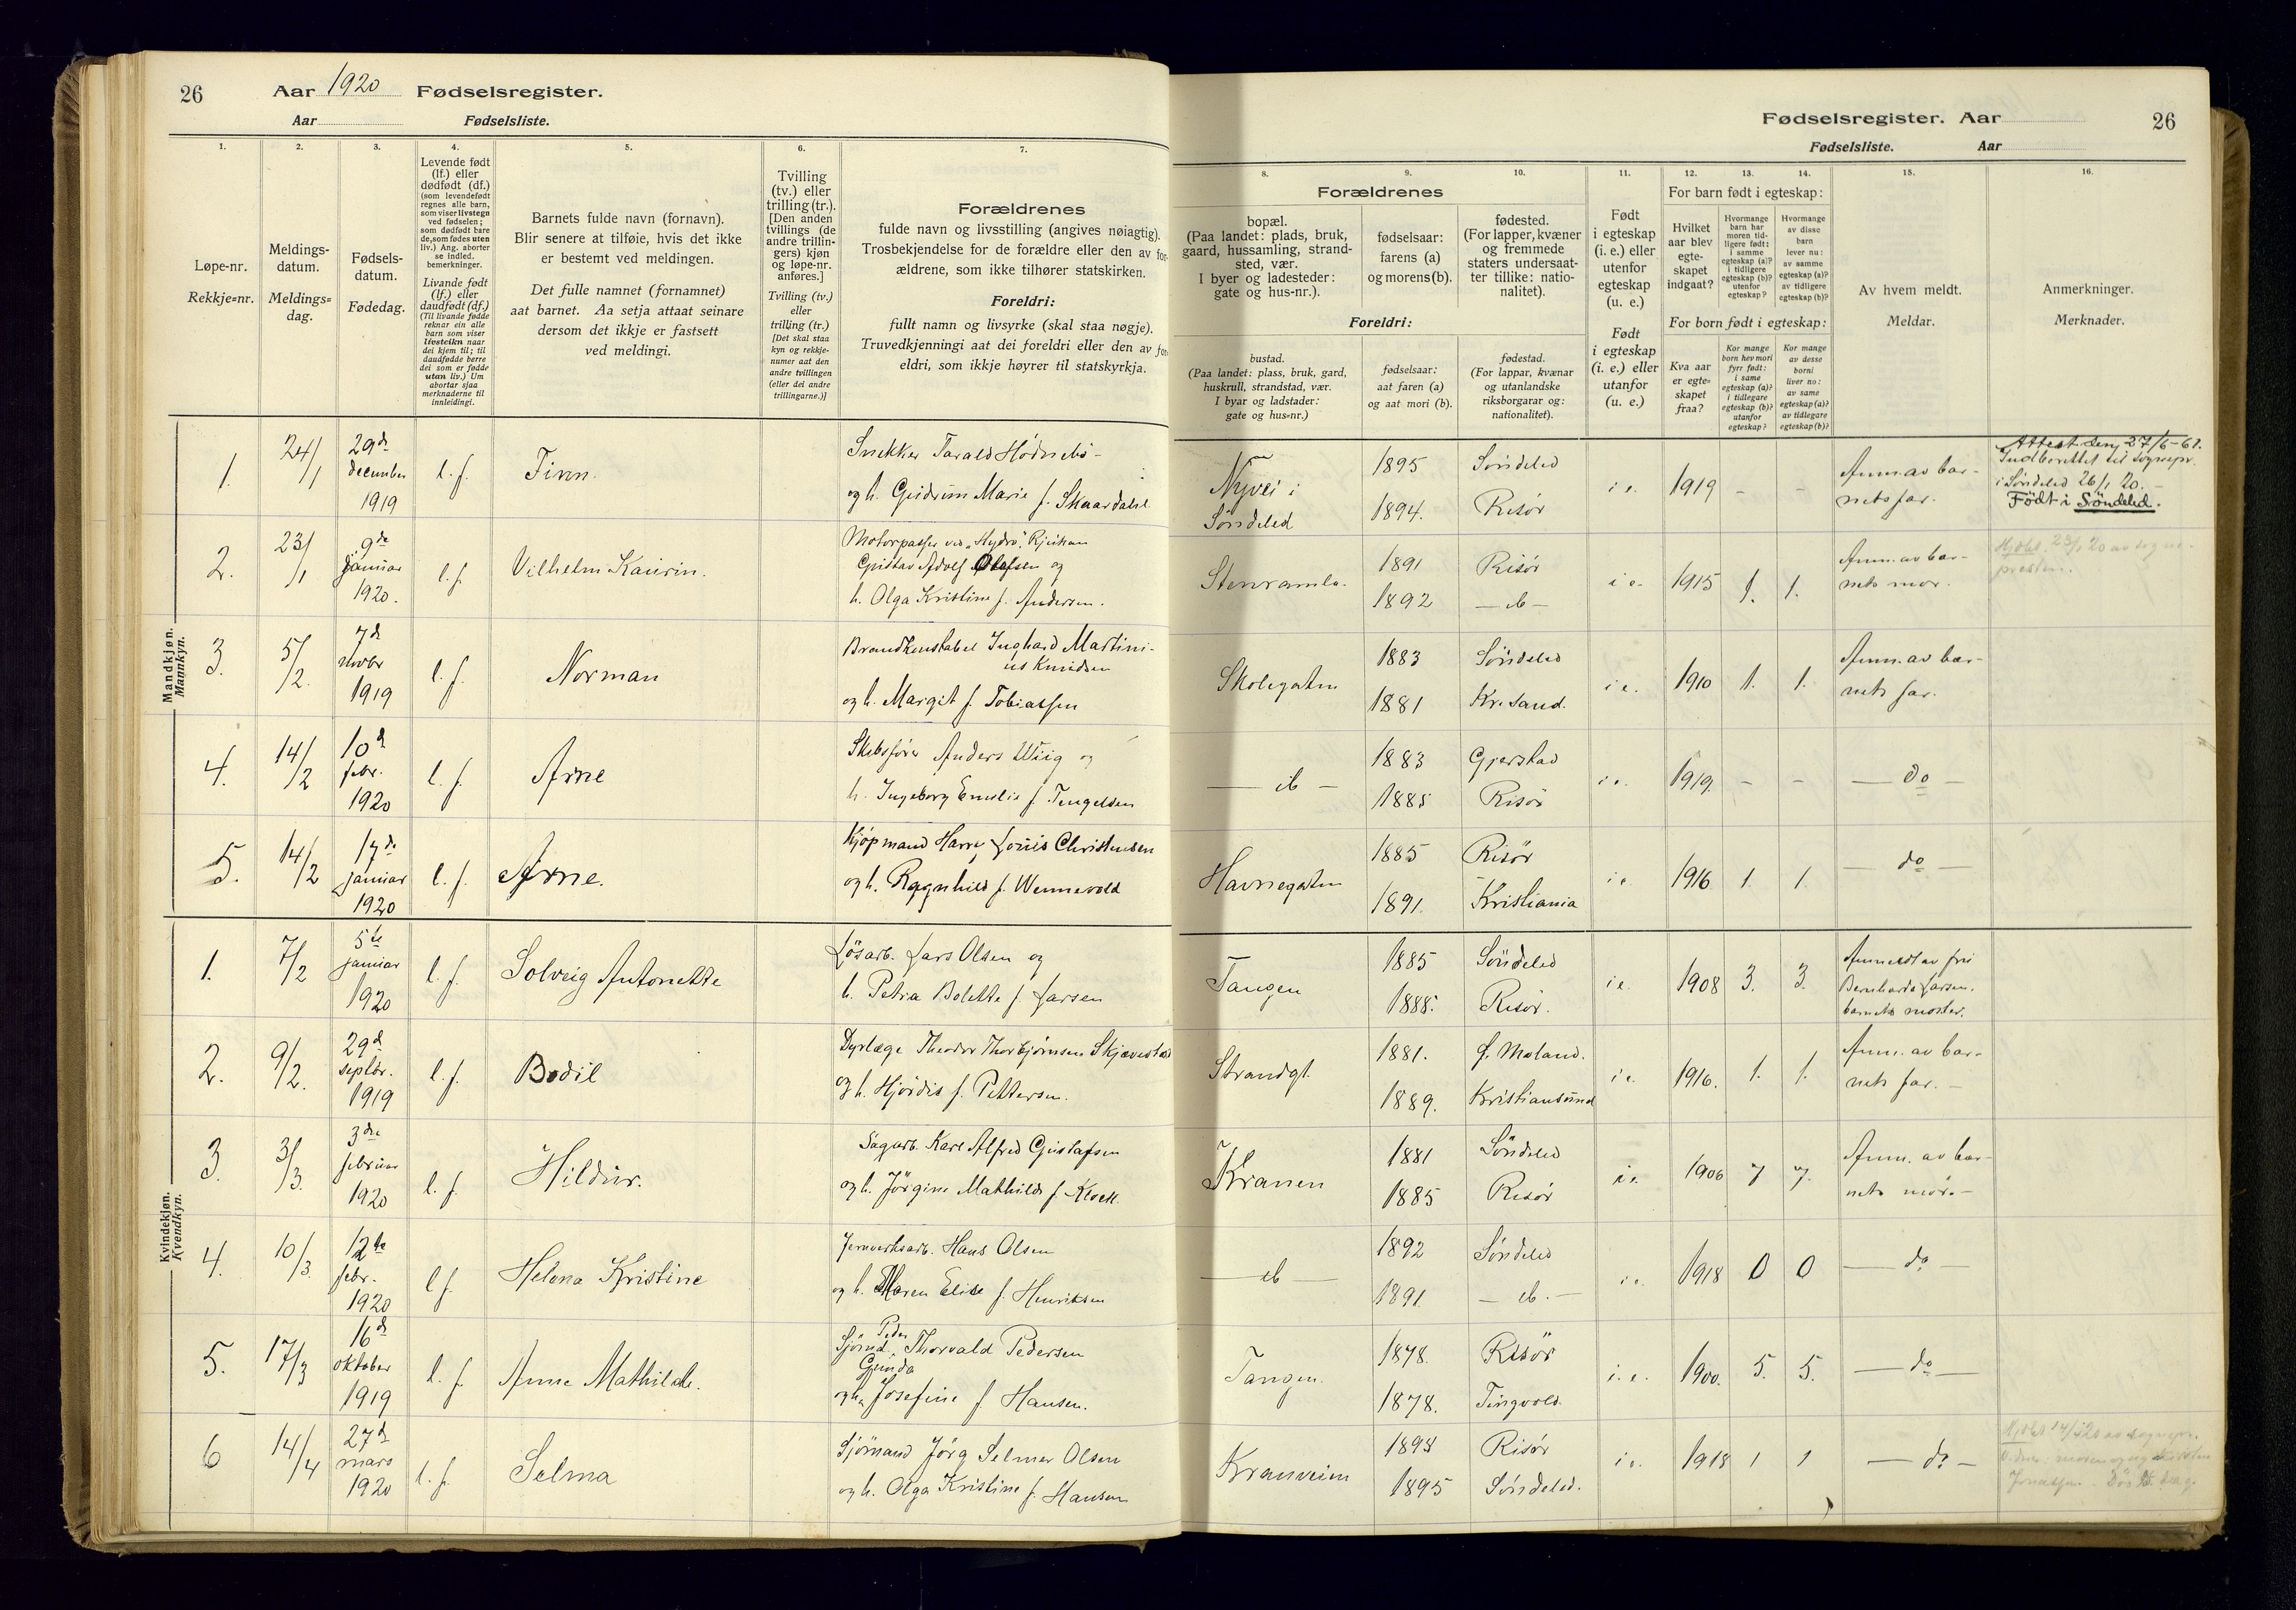 26 Aar 1920 Fødselsregister.
Aar Fødselsliste.
1. 2. 3. 4. 5. 6. 7.
Løpe-nr.
Rekkje=nr.
Meldings-
datum.
Meldings=
dag.
Fødsels-
datum.
Fødedag.
Levende født
(lf.) eller
dødfødt (df.)
(som levendefødt
regnes alle barn,
som viser livstegn
ved fødselen;
som dødfødt bare
de, som fødes uten
liv.) Ang. aborter
se indled.
bemerkninger.
Livande født
(lf.) eller
daudfødt (df.)
(Til livande fødde
reknar ein alle
barn som viser
livsteikn naar
dei kjem til; til
daudfødde berre
dei som er fødde
utan liv.) Um
abortar sjaa
merknaderne til
innleidingi.
Barnets fulde navn (fornavn).
Blir senere at tilføie, hvis det ikke
er bestemt ved meldingen.
Det fulle namnet (fornamnet)
aat barnet. Aa setja attaat seinare
dersom det ikkje er fastsett
ved meldingi.
Tvilling
(tv.) eller
trilling (tr.).
[Den anden
tvillings (de
andre trillin-
gers) kjøn
og løpe-nr.
anføres.]
Tvilling (tv.)
eller
trilling (tr.)
[Det skal staa
kyn og rekkje-
numer aat den
andre tvillingen
(eller dei andre
trillingarne.)]
Forældrenes
fulde navn og livsstilling (angives nøiagtig).
Trosbekjendelse for de forældre eller den av for-
ældrene, som ikke tilhører statskirken.
Foreldri:
fullt namn og livsyrke (skal staa nøgje).
Truvedkjenningi aat dei foreldri eller den av for-
eldri, som ikkje høyrer til statskyrkja.
Mandkjøn.
Mannkyn.
1. 24/1 29de december 1919 l. f. Finn.
Snekker Tarald Hødnebö -
og h. Gudrun Marie f. Skaardahl
2. 23/1 9de januar 1920. l. f. Vilhelm Kaurin.
Motorpasser ved "Hydro", Rjukan
Gustav Adolf Olafsen og
h. Olga Kristine f. Andersen.
3. 5/2. 7de novbr 1919 l. f. Norman
Brandkonstabel Inghard Martini-
us Knudsen
og h. Margit f. Tobiassen
4. 14/2 10de febr. 1920 l. f. Arne
Skibsfører Anders Wiig og
h. Ingeborg Emelie f. Tengelsen
5. 14/2 17de januar 1920 l. f. Arne.
Kjøpmand Harry Louis Christensen
og h. Ragnhild f. Wennevold
Kvindekjøn.
Kvendkyn.
1. 7/2 5te januar 1920 l. f. Solveig Antonette
Løsarb. Lars Olsen og
h. Petra Bolette f. Larsen
2. 9/2. 29de septbr. 1919 l. f. Bodil
Dyrlæge Theodor Thorbjørnsen Skjævestad
og h. Hjördis f. Pettersen.
3. 3/3. 3die februar 1920 l. f. Hildur.
Sagarb. Karl Alfred Gustafsen
og h. Jörgine Mathilde f. Kloen
4. 10/3. 12te febr. 1920 l f. Helena Kristine
Jernverksarb. Hans Olsen
og h. Maren Elise f. Henriksen
5. 17/3 16de oktober 1919 l. f. Anne Mathilde.
Peder
Sjömd. Thorvald Pedersen
Gunda
og h. Josefine f. Hansen.
6 14/4 27de mars 1920 l. f. Selma
Sjömand Jörg Selmer Olsen
og h. Olga Kristine f. Hansen
Fødselsregister. Aar 26
Fødselsliste. Aar
8. 9. 10. 11. 12. 13. 14. 15. 16.
Forældrenes
bopæl.
(Paa landet: plads, bruk,
gaard, hussamling, strand-
sted, vær.
I byer og ladesteder:
gate og hus-nr.).
fødselsaar:
farens (a)
og morens (b).
fødested.
(For lapper, kvæner
og fremmede
staters undersaat-
ter tillike: natio-
nalitet).
Foreldri:
bustad.
(Paa landet: plass, bruk, gard,
huskrull, strandstad, vær.
I byar og ladstader:
gate og hus-nr.)
fødselsaar:
aat faren (a)
og aat mori (b).
fødestad.
(For lappar, kvænar
og utanlandske
riksborgarar og:
nationalitet).
Født
i egteskap
(i. e.) eller
utenfor
egteskap
(u. e.)
Født
i egteskap
(i. e.) eller
utanfor
(u. e.)
For barn født i egteskap:
Hvilket
aar blev
egte-
skapet
indgaat?
Hvormange
barn har
moren tid-
ligere født:
i samme
egteskap (a)?
i tidligere
egteskap (b)?
utenfor
egteskap?
Hvormange
av disse
barn
lever nu:
av samme
egteskap (a)?
av tidligere
egteskap (b)?
For born født i egteskap:
Kva aar
er egte=
skapet
fraa?
Kor mange
born hev mori
fyrr født:
i same
egteskap (a)?
i tidlegare
egteskap (b)?
utanfor
egteskap?
Kor mange
av desse
borni
liver no:
av same
egteskap (a)?
av tidlegare
egteskap (b)?
Av hvem meldt.
Meldar.
Anmerkninger.
Merknader.
Nyvei i
Söndeled
1895 Söndeled
1894. Risör
i e. 1919 - -
Anm. av bar-
nets far.
Attest sen, 27/6-61.
Indberettet til sognepr.
i Söndeled 26/1 20. -
Født i Söndeled.
Stenramla.
1891 Risör
1892 — ib —
i e. 1915 1. 1.
Anm. av bar-
nets mor.
Hjdbt. 23/1 20 av sogne-
presten.
Skolegaten
1883 Söndeled
1881 Kr.sand.
i e. 1910 1. 1.
Anm. av bar-
nets far.
— ib —
1883 Gjerstad
1885 Risör
i e. 1919. - - — do —
Havnegaten
1885 Risör
1891. Kristiania
i e. 1916 1. 1. — do —
Tangen
1885 Söndeled
1888. Risör.
i e. 1908 3. 3.
Anmeldt av fru
Bernharda Larsen,
barnets moster.
Strandgt.
1881. Ø. Moland.
1889. Kristiansund
i e. 1916. 1. 1.
Anm. av bar-
nets far. —
Kranen
1881 Söndeled
1885 Risör
i e. 1906 7 7.
Anm. av bar-
nets mor. —
— ib —
1892 Söndeled
1891. — ib. —
i e. 1918 0 0 — do —
Tangen.
1878. Risör
1878. Tingvold.
i. e. 1900. 5. 5. — do —
Kranveien
Risör
1895 Söndeled.
i e. 1918 1 1 — do —